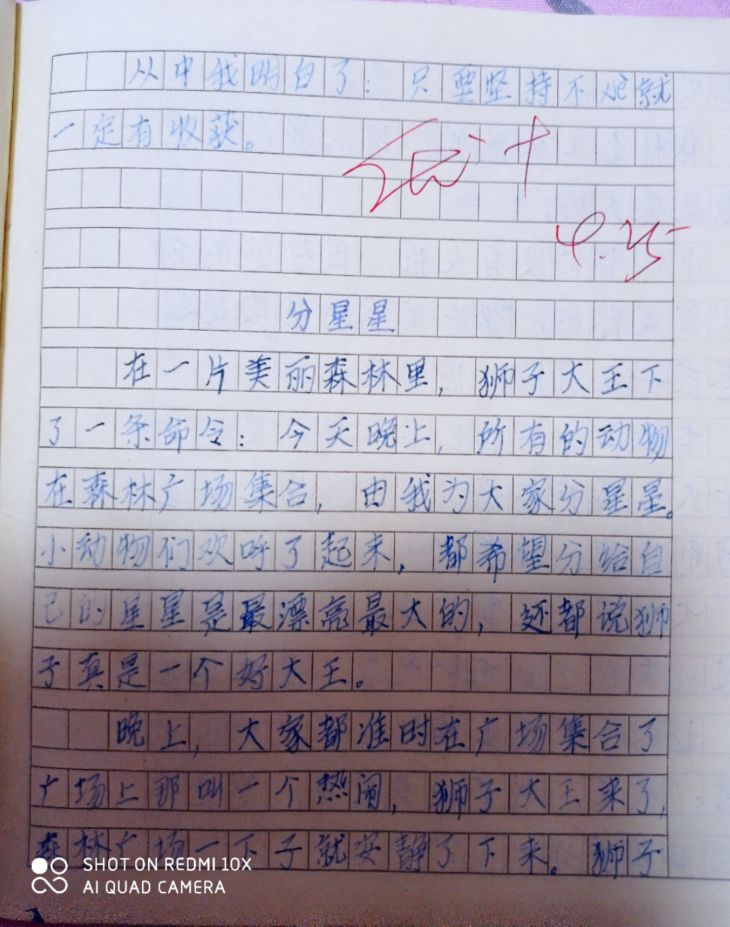 从中我明白了：只要坚持不懈就
一定有收获。
分星星
在一片美丽森林里，狮子大王下
了一条命令：今天晚上，所有的动物
在森林广场集合，由我为大家分星星。
小动物们欢呼了起来，都希望分给自
己的星星是最漂亮最大的，还都说狮
子真是一个好大王。
晚上，大家都准时在广场集合了
广场上那叫一个热闹，狮子大王来了，
森林广场一下子就安静了下来。狮子
SHOT ON REDMI 10X
AI QUAD CAMERA